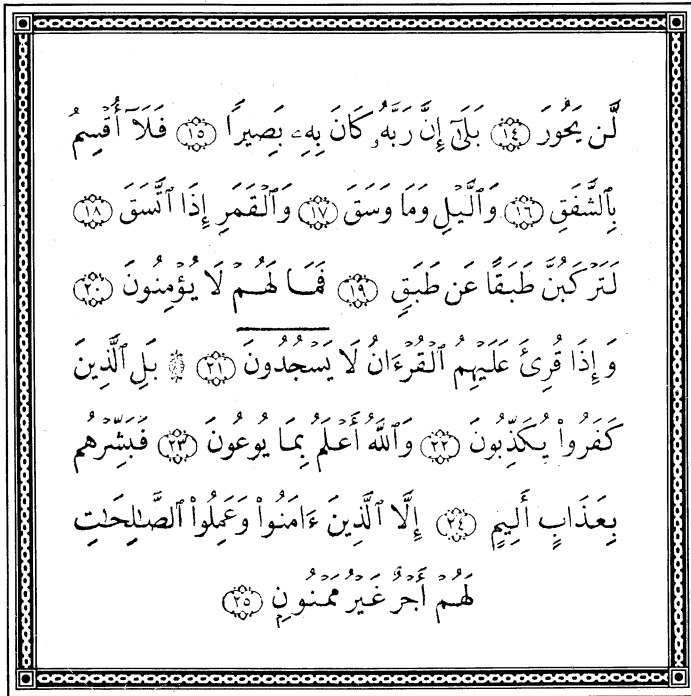 لَّن يَحُورَ ١٤ بَلَىٰٓ إِنَّ رَبَّهُۥ كَانَ بِهِۦ بَصِيرًا ١٥ فَلَآ أُقْسِمُ
بِٱلشَّفَقِ ١٦ وَٱلَّيْلِ وَمَا وَسَقَ ١٧ وَٱلْقَمَرِ إِذَا ٱتَّسَقَ ١٨
لَتَرْكَبُنَّ طَبَقًا عَن طَبَقٍ ١٩ فَمَا لَهُمْ لَا يُؤْمِنُونَ ٢٠
وَإِذَا قُرِئَ عَلَيْهِمُ ٱلْقُرْءَانُ لَا يَسْجُدُونَ ٢١ ۩ بَلِ ٱلَّذِينَ
كَفَرُوا۟ يُكَذِّبُونَ ٢٢ وَٱللَّهُ أَعْلَمُ بِمَا يُوعُونَ ٢٣ فَبَشِّرْهُم
بِعَذَابٍ أَلِيمٍ ٢٤ إِلَّا ٱلَّذِينَ ءَامَنُوا۟ وَعَمِلُوا۟ ٱلصَّٰلِحَٰتِ
لَهُمْ أَجْرٌ غَيْرُ مَمْنُونٍۭ ٢٥